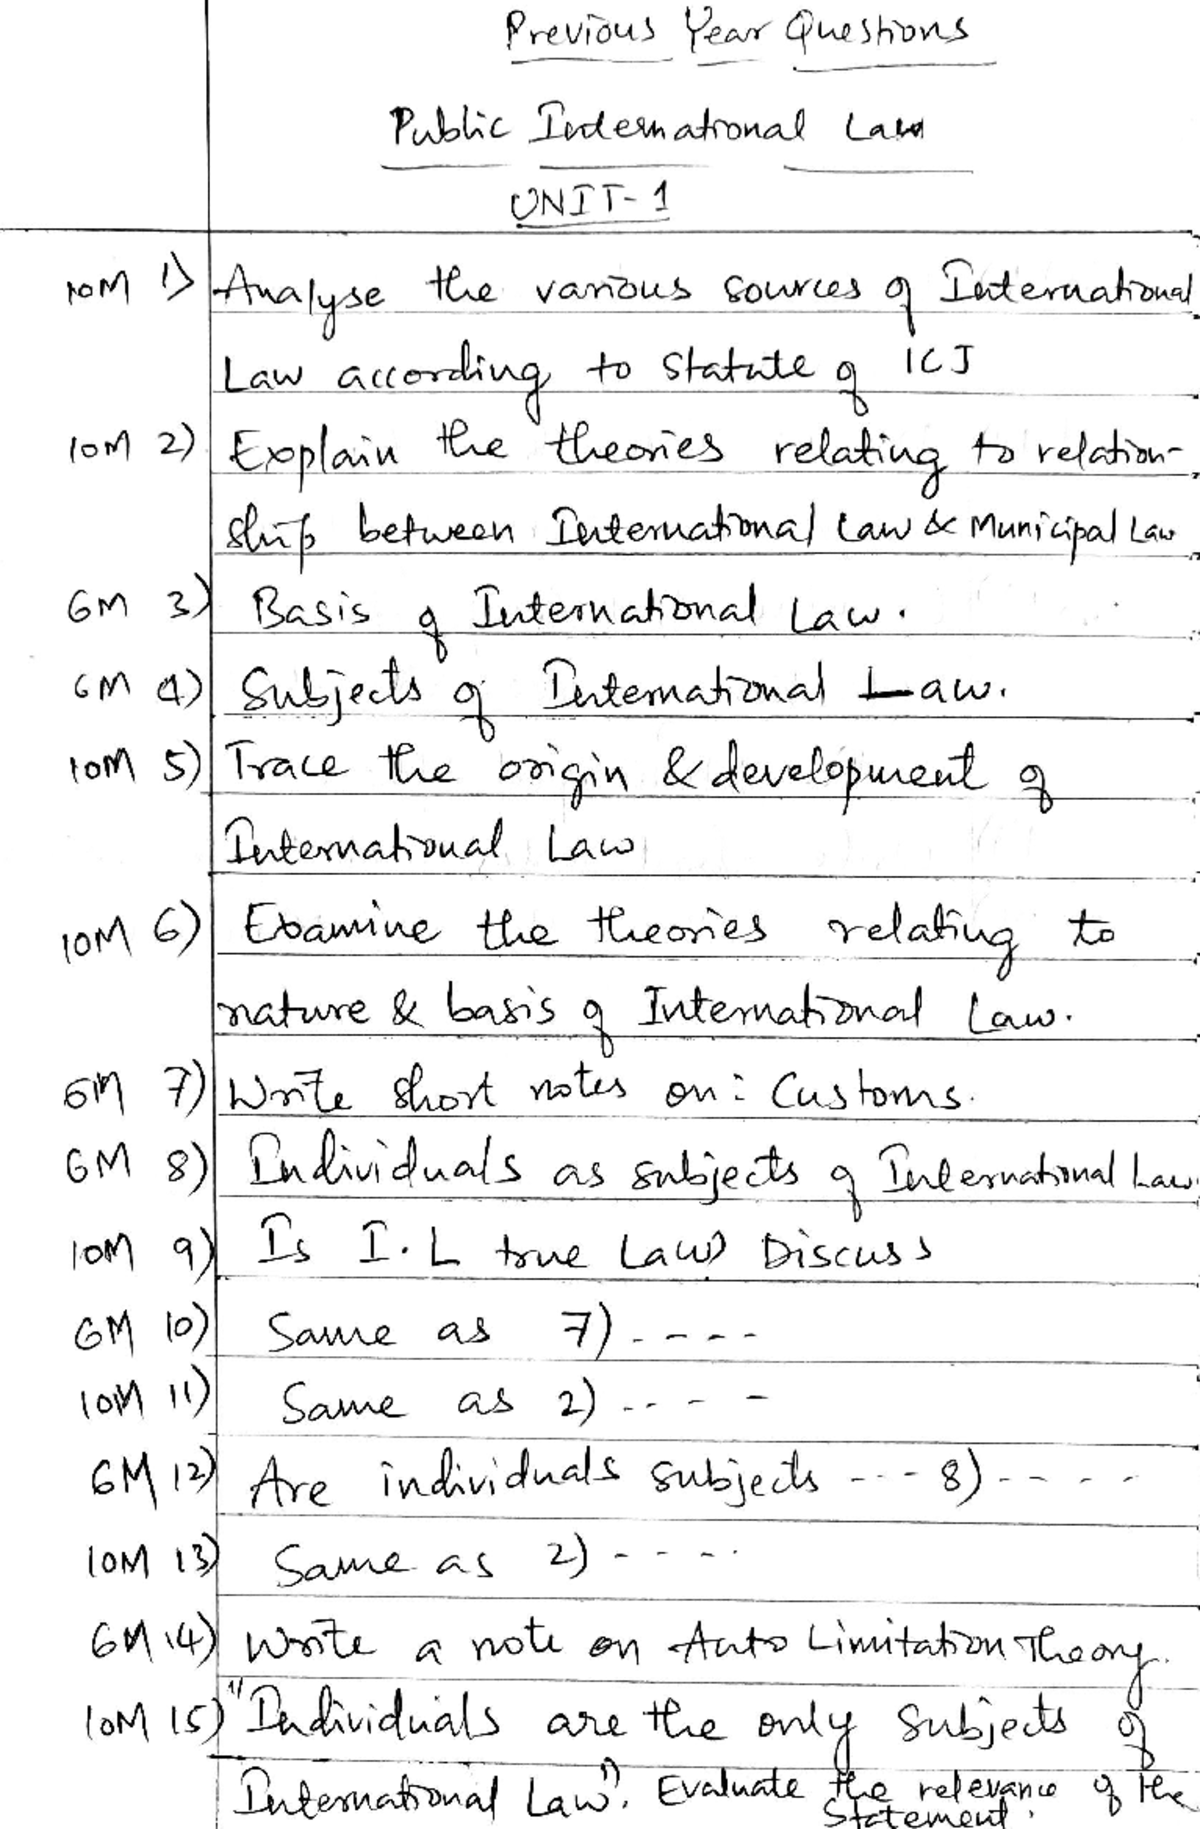 Previous Year Questions
Public International Law
UNIT-1
10M 1) Analyse the various sources of International
Law according to Statute of ICJ
10M 2) Explain the theories relating to relation-
ship between International Law & Municipal Law
6M 3) Basis of International Law.
6M 4) Subjects of International Law.
10M 5) Trace the origin & development of
International Law
10M 6) Examine the theories relating to
nature & basis of International Law.
6M 7) Write short notes on: Customs.
6M 8) Individuals as subjects of International Law.
10M 9) Is I.L true Law? Discuss
6M 10) Same as 7) - - - -
10M 11) Same as 2) - - - -
6M 12) Are individuals subjects - - - 8) - - - -
10M 13) Same as 2) - - - -
6M 14) Write a note on Auto Limitation Theory.
10M 15) "Individuals are the only Subjects of
International Law". Evaluate the relevance of the
Statement.